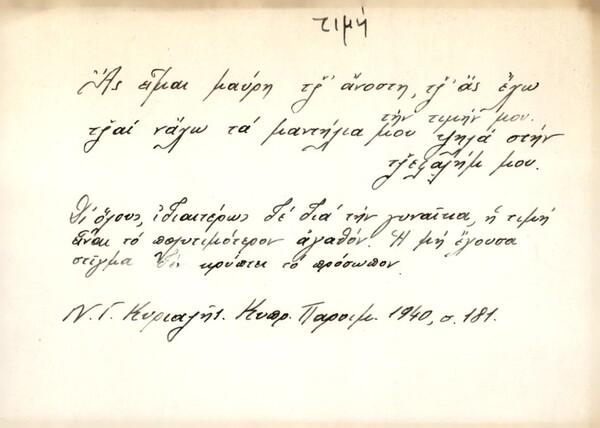 τιμή
Ἂς εἶμαι μαύρη τζ̌' ἄνοστη, τζ̌' ἂς ἔχω
τὴν τιμήν μου.
τζ̌αὶ νἄχω τὰ μαντήλια μου ψηλὰ στὴν
τζ̌εφαλήμ μου.
Δι' ὅλους, ἰδιαιτέρως δὲ διὰ τὴν γυναῖκα, ἡ τιμὴ
εἶναι τὸ πολυτιμότερον ἀγαθόν. Ἡ μὴ ἔχουσα
στίγμα δὲν κρύπτει τὸ πρόσωπον.
Ν. Γ. Κυριαζῆς. Κυπρ. Παροιμ. 1940, σ. 181.